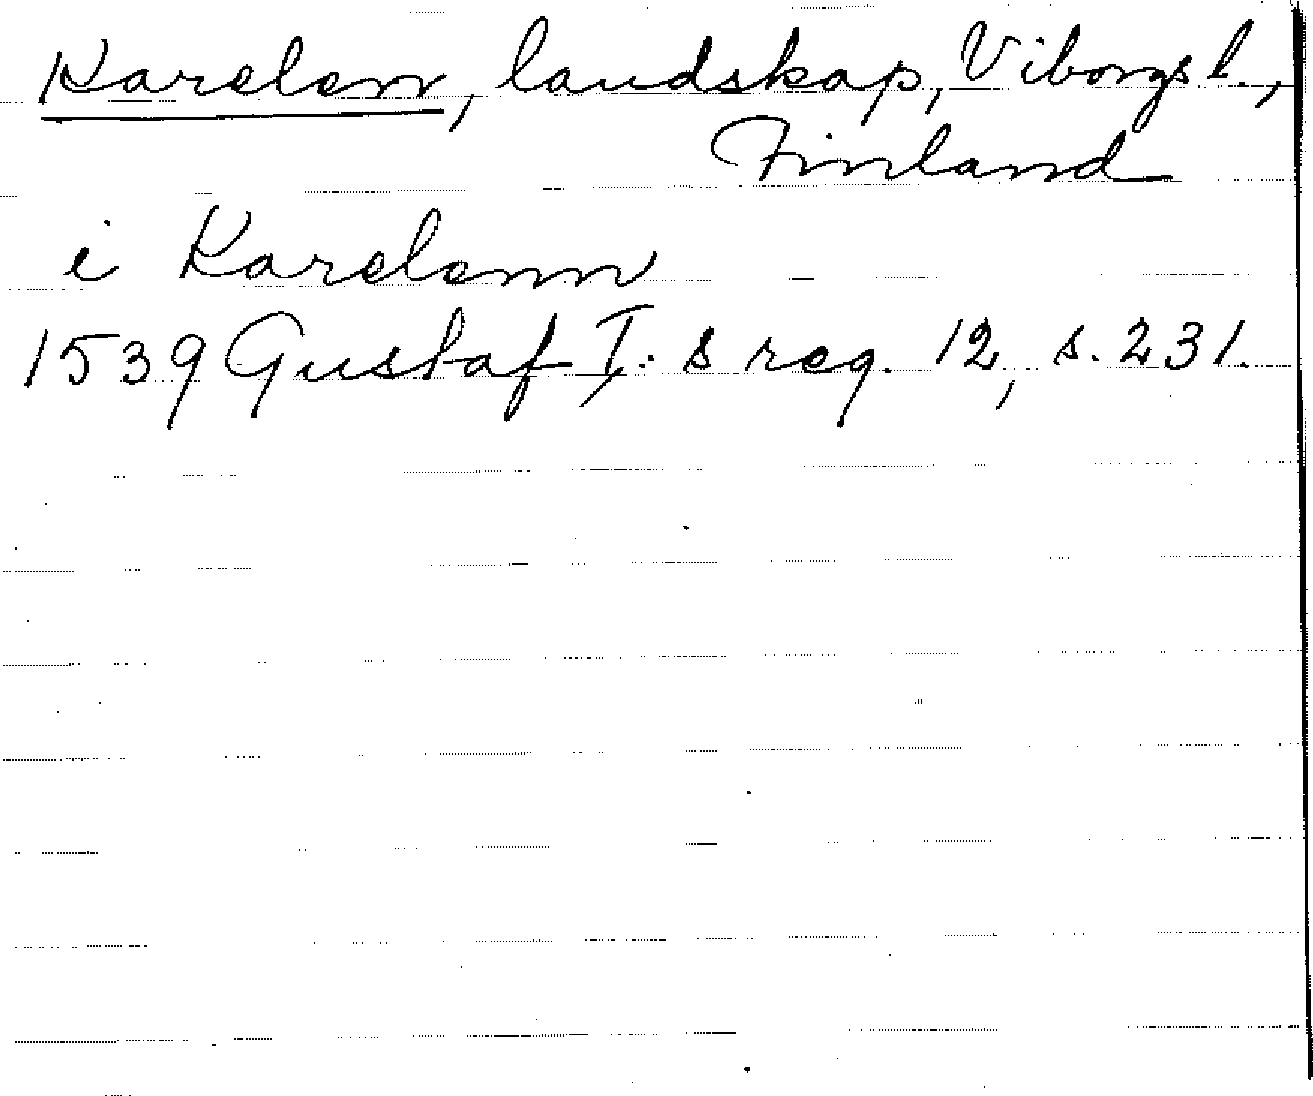 Karelen, landskap, Viborgs l.,
Finland
i Karelenn
1539 Gustaf I:s reg. 12, s. 231.